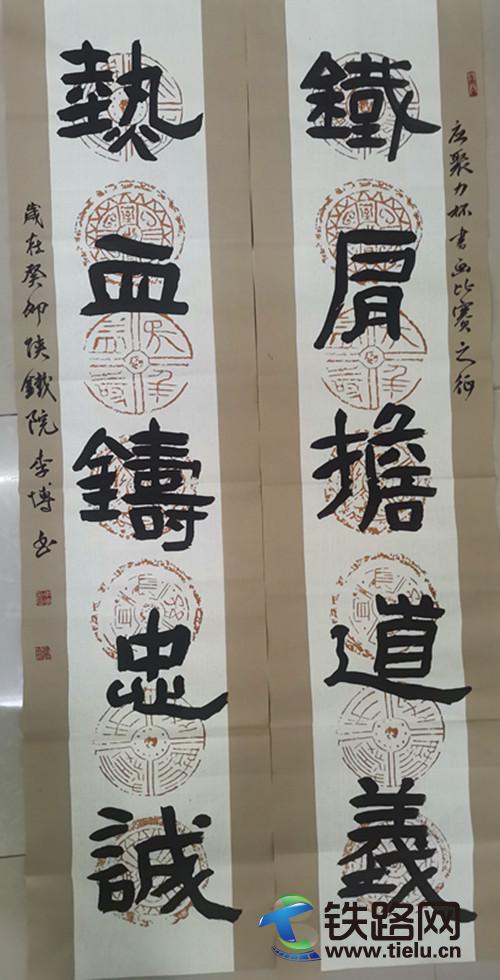 应聚力杯书画比赛之征
鐵肩擔道義
熱血鑄忠誠
歲在癸卯陕鐵院李博书
铁路网
www.tielu.cn